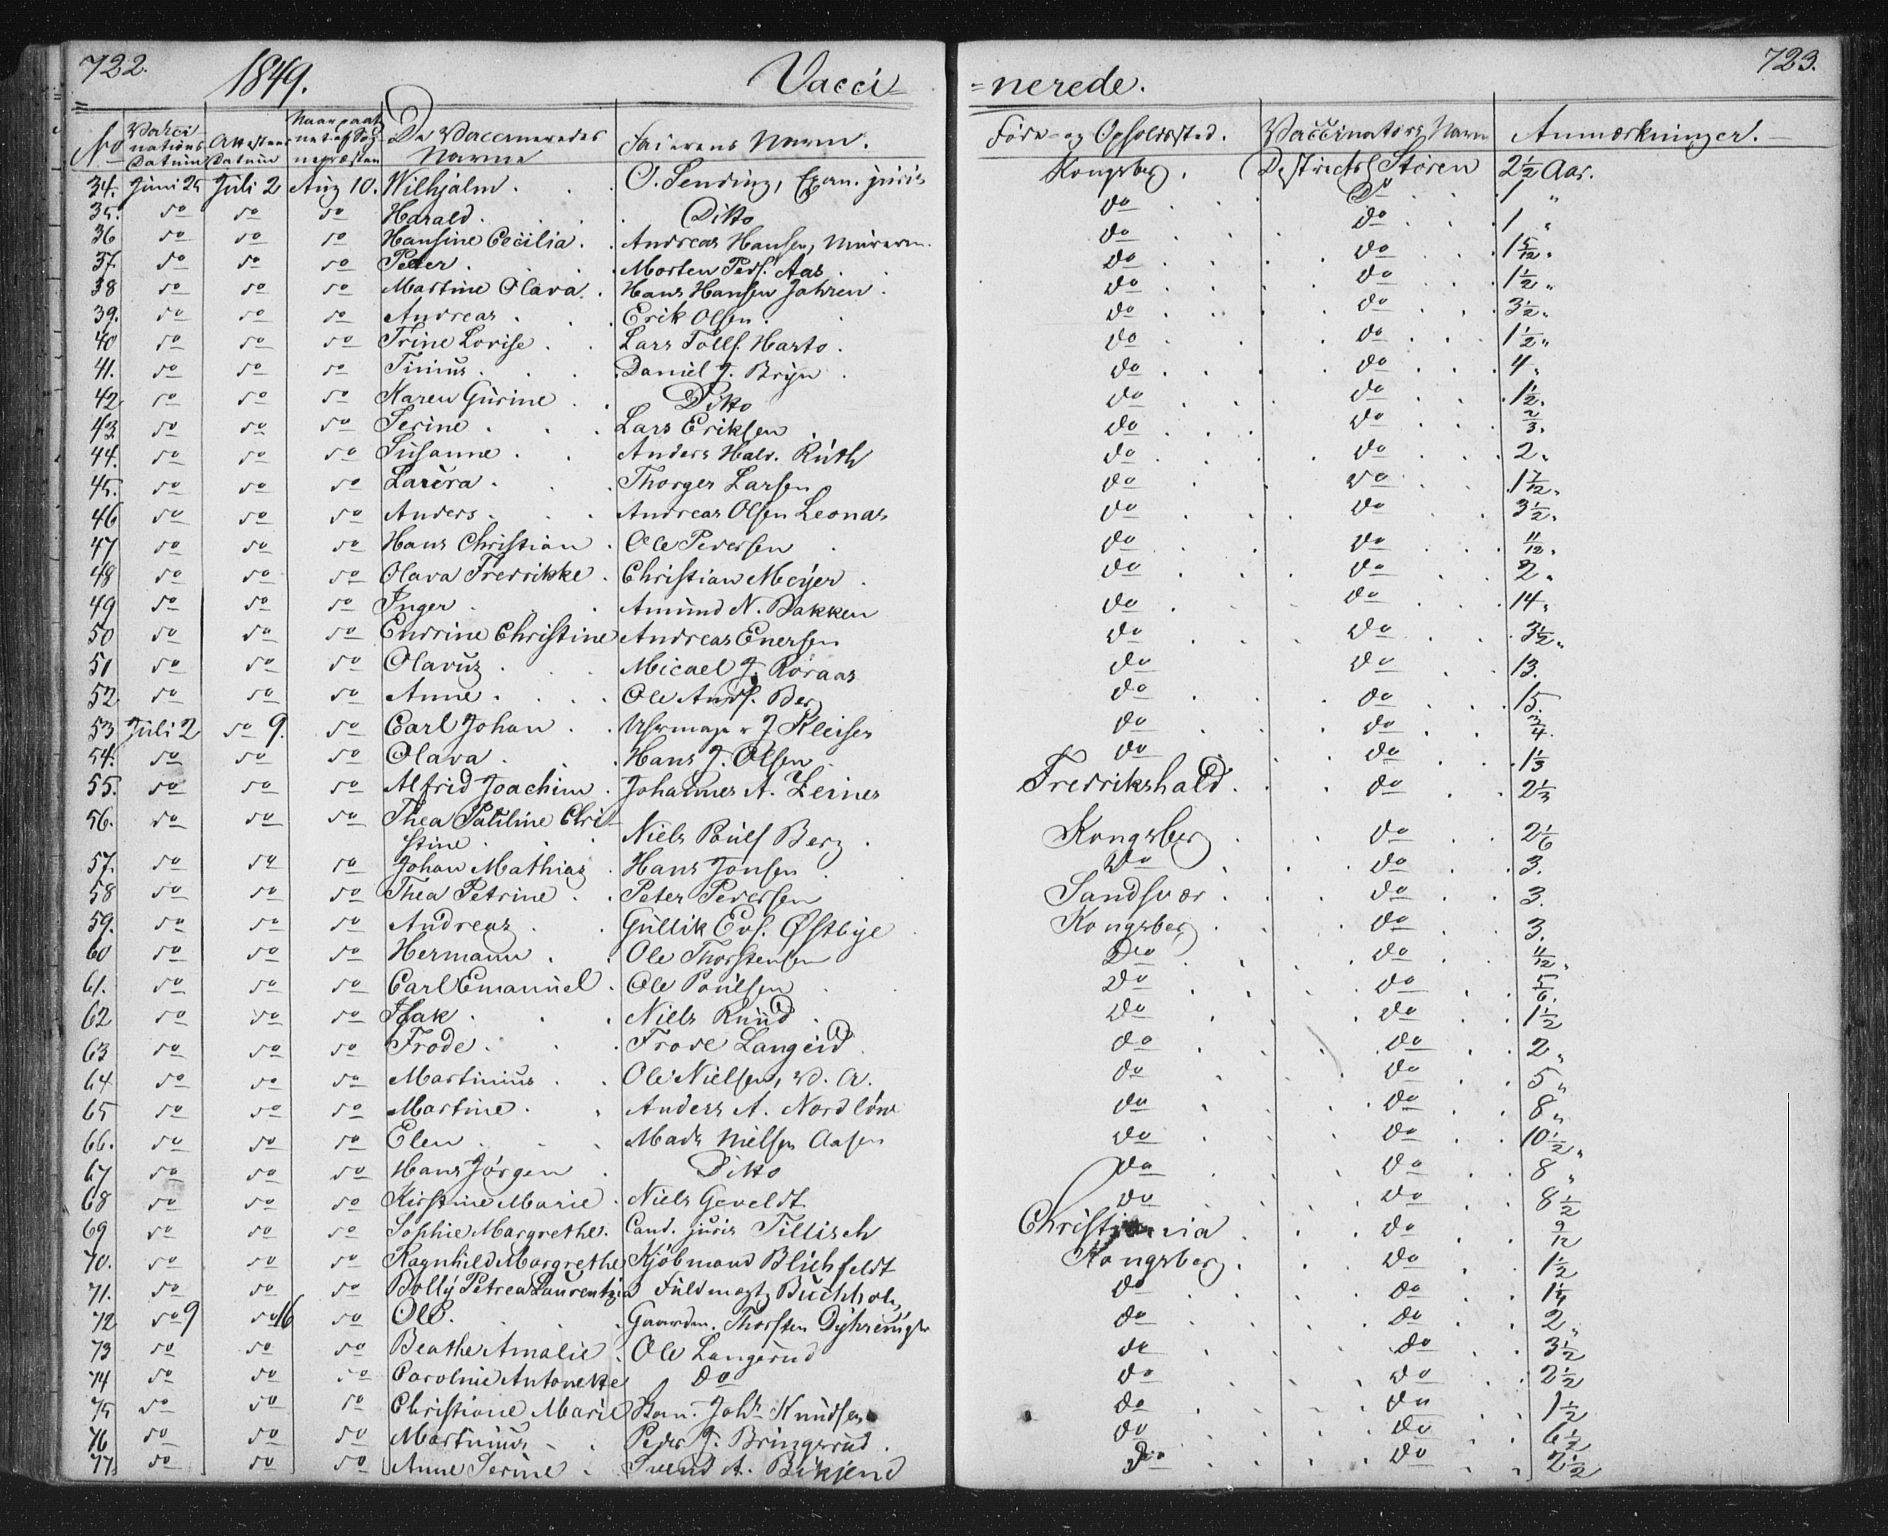 722.
1849.
Vacci-
-nerede.
723.
No Vaccinations Datum Attestens Datum Naar paategnet af Sognepræsten De Vaccineredes Navne Faderens Navn. Føde- og Opholdssted. Vaccinatørs Navn Anmærkninger.
34. Juni 25 Juli 2 Aug 10. Wilhjalm. O. Sending, Exam. juris Kongsberg. Destrictsl Støren 2½ Aar.
35. do do do Harald. Ditto do Do 1 "
36 do do do Hansine Cecilia. Andreas Hansen, Murerm. do do 1 "
37. do do do Peter. Morten Peds. Aas do do 1 5/12 "
38 do do do Martine Olava. Hans Hansen Jahren. do do 1½ "
39. do do do Andreas. Erik Olsen. do do 3½ "
40 do do do Trine Lovise. Lars Tollfs. Harto. do do 1½ "
41. do do do Tinius. Daniel J. Bryn. do do 4 "
42 do do do Karen Gurine. Ditto do do 1½ "
43 do do do Serine. Lars Eriksen. do do 2/3 "
44. do do do Susanne. Anders Halv. Ruth do do 2 "
45. do do do Laura. Thorger Larsen do do 1 7/12 "
46 do do do Anders. Andreas Olsen Leonas do do 3½ "
47 do do do Hans Christian. Ole Pedersen do do 11/12 "
48 do do do Olava Fredrikke. Christian Meyer. do do 2 "
49 do do do Inger. Amund N. Bakken do do 14 "
50 do do do Endrine Christine Andreas Enersen do do 3½ "
51 do do do Olavus. Micael J. Røraas do do 13.
52 do do do Anne. Ole Ands. Berg do do 15.
53 Juli 2 do 9. do Carl Johan. Uhrmager J Kleiser do do 3/4.
54. do do do Olava. Hans J. Olsen do do 1⅓
55. do do do Alfrid Joachim. Johannes A. Zeiner Fredrikshald. do 2⅓
56. do do do Thea Pauline Chri-
stine. Niels Pouls Berg. Kongsberg do 2⅙
57. do do do Johan Mathias. Hans Jonsen Do do 3.
58 do do do Thea Petrine. Peter Pedersen Sandsvær. do 3.
59. do do do Andreas. Gullik Evs. Østbye Kongsberg do 3.
60 do do do Hermann. Ole Thorstensen Do do 11/12 "
61. do do do Carl Emanuel. Ole Poulsen do do 5/6.
62 do do do Isak. Niels Ruud. do do 1½
63 do do do Frode. Frode Langeid. do do 2 "
64 do do do Martinius. Ole Nielsen, do do 5 "
65 do do do Martine. Anders A. do do 8 "
66. do do do Elen. Mads Nielsen Aasen do do 10½ "
67 do do do Hans Jørgen. Ditto do do 8 "
68 do do do Kirstine Marie. Niels Geveldt do do 8½
69 do do do Sophie Margrethe. Cand. juris Tillisch Christiania do 9/12
70. do do do Ragnhild Margrethe Kjøbmand Blichfeldt Kongsberg. do 1½
71. do do do Bolly Petrea Laurentzia Fuldmægt Buchholz do do 1¼
72 do 9 do 16 do Ole. Gaardm. Thorsten do do 2 "
73 do do do Beathe Amalie. Ole Langerud do do 3½
74 do do do Caroline Antonette do do do 2½
75 do do do Christiane Marie Johs Knudsen do do 1½
76 do do do Martinius. Peder J. Bringerud. do do 6½
77. do do do Anne Serine. A. do do 2½